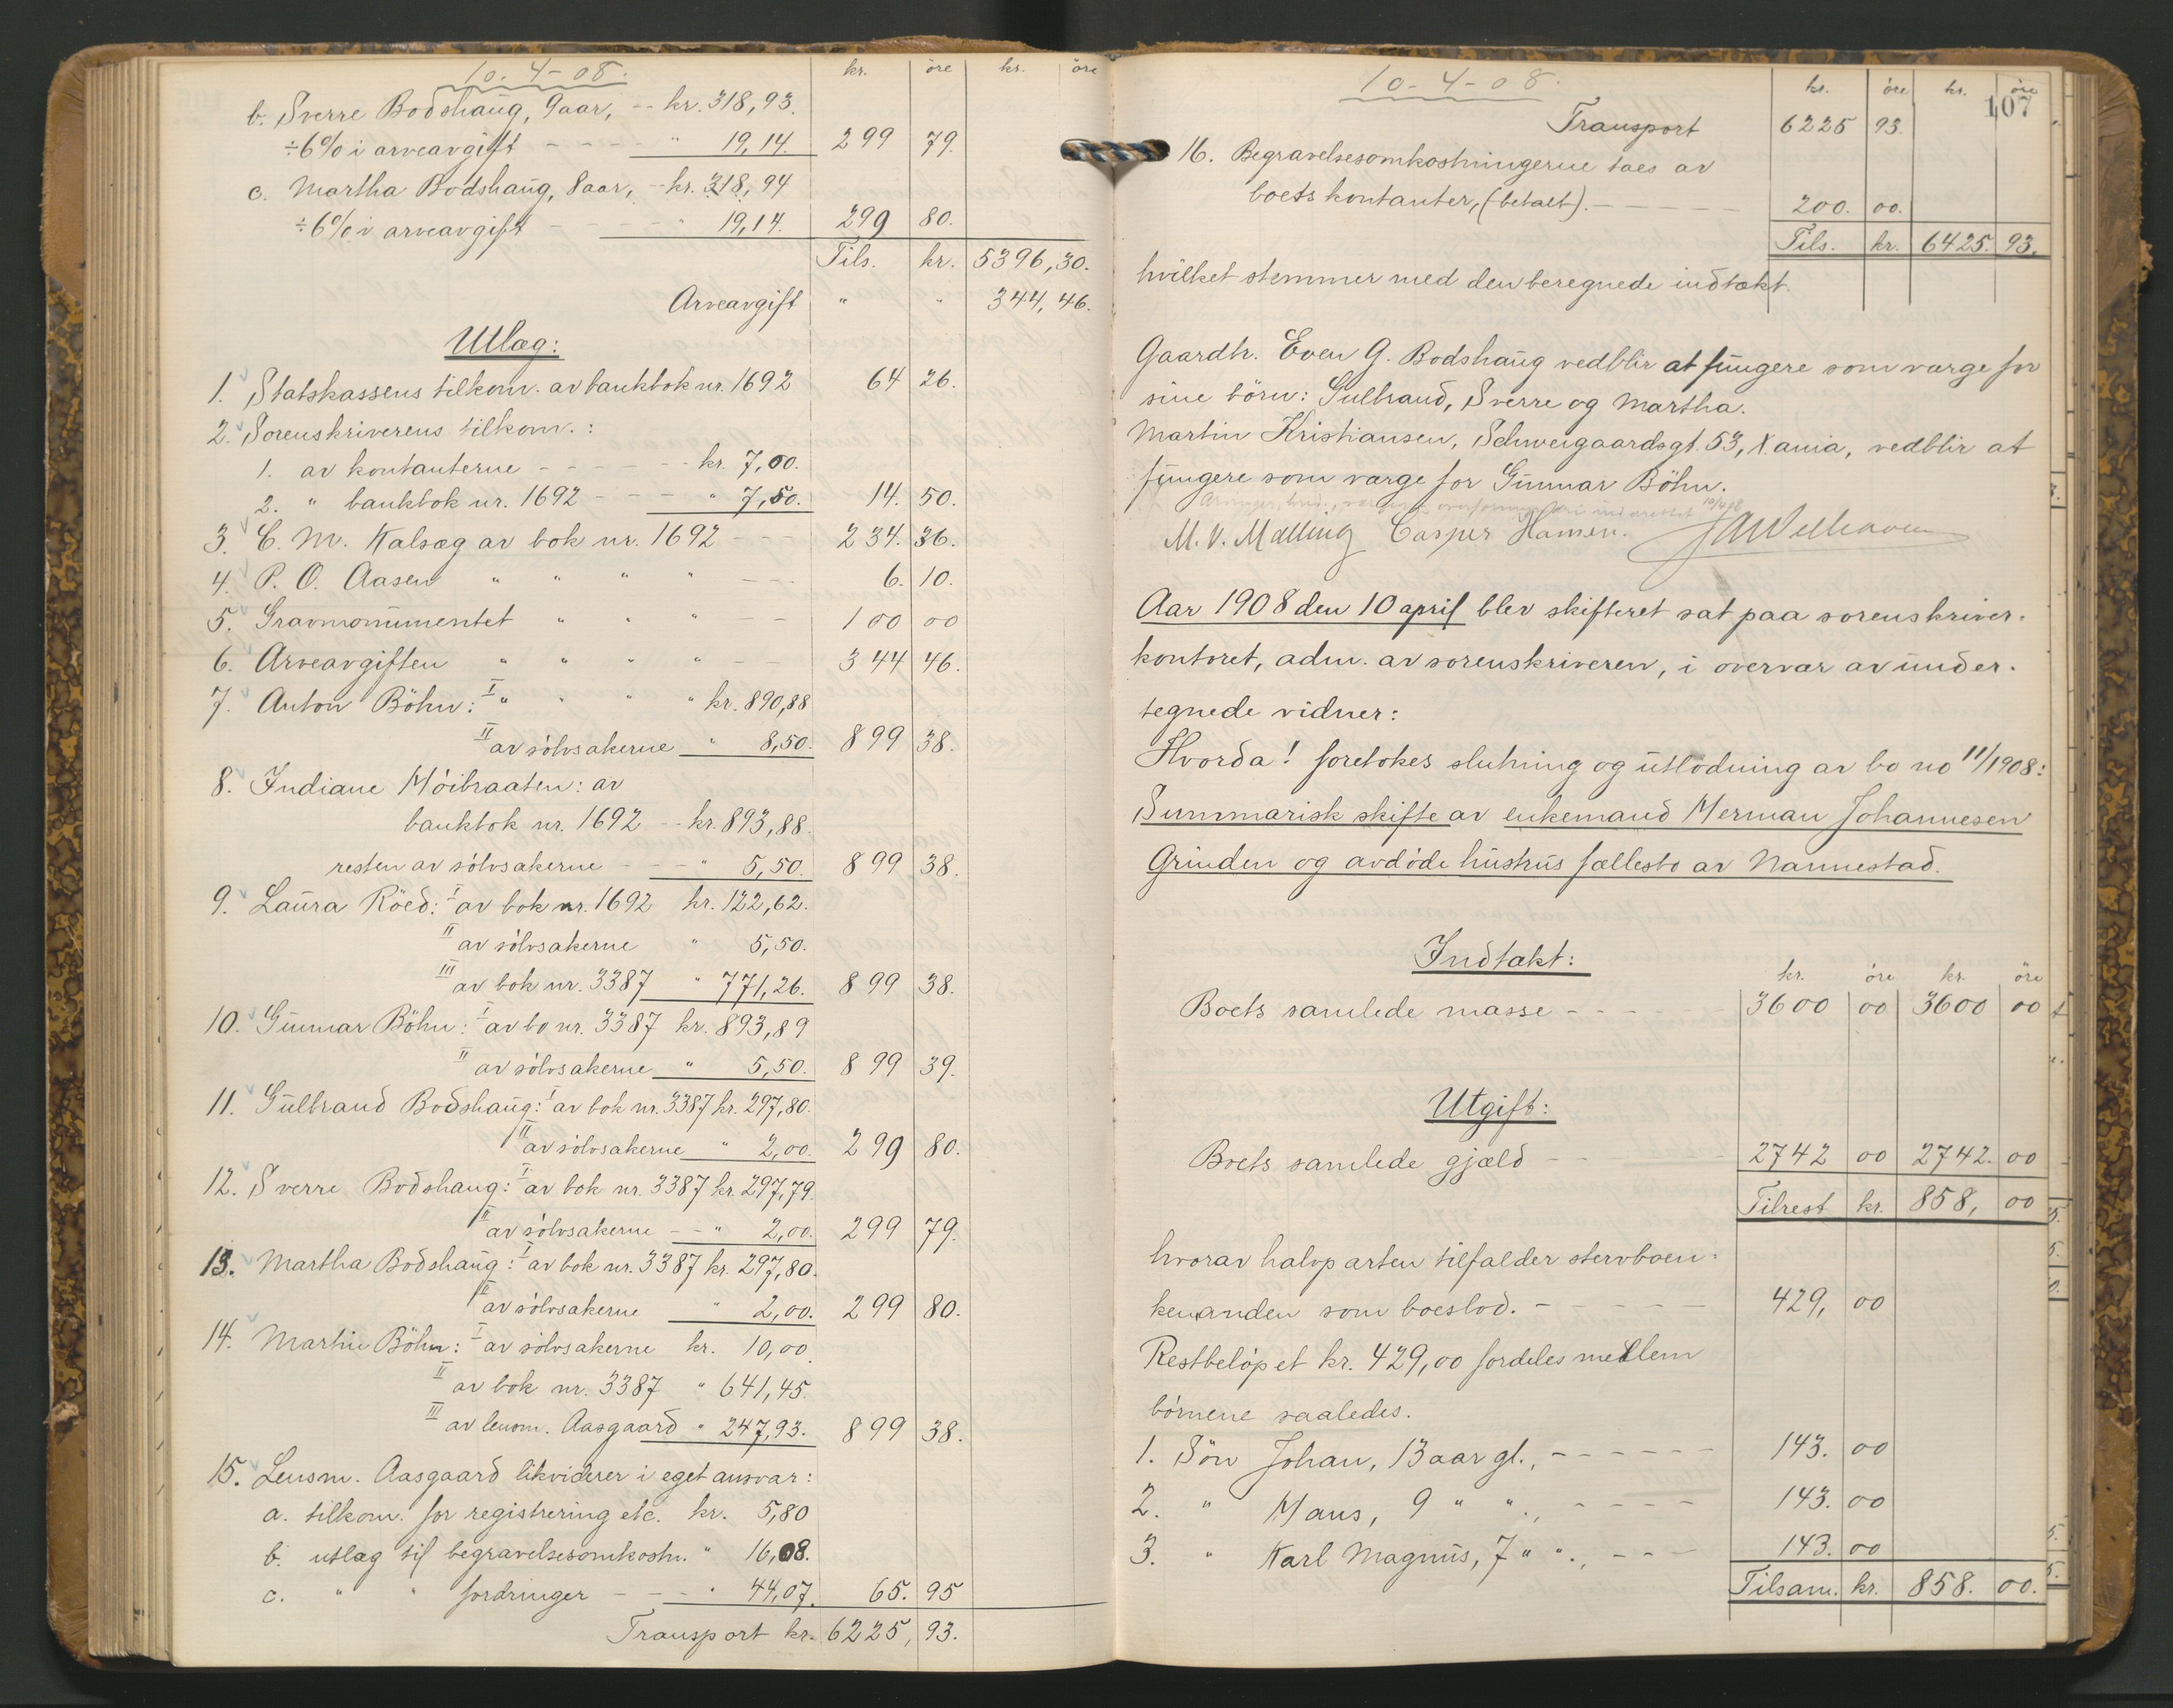 10-4-08.
kr. öre kr. öre
b. Sverre Bodshaug, 9 aar, -- kr. 318,93.
÷6% i arveavgift - - - - " 19,14. 299 79.
c. Martha Bodshaug, 8 aar, -- kr. 318,94
÷6% i arveavgift - - - - " 19,14. 299 80.
Tils. kr. 5396,30.
Arveavgift " " 344,46.
Utlæg:
1. Statskassens tilkom. av bankbok nr. 1692 64 26.
2. Sorenskriverens tilkom. :
1. av kontanterne - - - - - - kr. 7,00.
2. " bankbok nr. 1692 - - - - " 7,50. 14. 50.
3. C. M. Kalsæg av bok nr. 1692 - - - 234. 36.
4. P. O. Aasen " " " " - - - 6. 10.
5. Gravmonumentet " " " - - 100 00
6. Arveavgiften " " " " - - 344 46.
7. Anton Böhn: I " " " " kr. 890,88
II av sölvsakerne " 8,50. 899 38.
8. Indiane Möibraaten: av
bankbok nr. 1692 -- kr. 893,88.
resten av sölvsakerne - - - " 5,50. 899 38.
9. Laura Röed: I av bok nr. 1692 kr. 122,62.
II av sölvsakerne " 5,50.
III av bok nr. 3387 " 771,26. 899 38.
10. Gunnar Böhn: I av bo nr. 3387 kr. 893,89
II av sölvsakerne " 5,50. 899 39.
11. Gulbrand Bodshaug: I av bok nr. 3387 kr. 297,80.
II av sölvsakerne " 2,00. 299 80.
12. Sverre Bodshaug: I av bok nr. 3387 kr. 297,79.
II av sölvsakerne -- " 2,00. 299 79.
13. Martha Bodshaug: I av bok nr. 3387 kr. 297,80.
II av sölvsakerne " 2,00. 299 80.
14. Martin Böhn: I av sölvsakerne kr. 10,00.
II av bok nr. 3387 " 641,45.
III av lensm. Aasgaard " 247,93. 899 38.
15. Lensm. Aasgaard likviderer i eget ansvar:
a. tilkom. for registrering etc. kr. 5,80
b. utlag til begravelsesomkostn. " 16,08.
c. " " fordringer - - - " 44,07. 65. 95
Transport kr. 6225, 93.
10-4-08.
kr. öre kr. öre
107
Transport 6225 93.
16. Begravelsesomkostningerne taes av
boets kontanter, (betalt). - - - - - 200. 00.
Tils. kr. 6425. 93.
hvilket stemmer med den beregnede indtækt.
Gaardbr. Even G. Bodshaug vedblir at fungere som værge for
sine börn: Gulbrand, Sverre og Martha.
Martin Kristiansen, Schweigaardsgt. 53, X.ania, vedblir at
fungere som værge for Gunnar Böhn.
M. V. Malling Casper Hansen.
Aar 1908 den 10 april blev skifteret sat paa sorenskriver-
kontoret, adm. av sorenskriveren, i overvær av under-
tegnede vidner:
Hvorda! foretokes slutning og utlodning av bo no 11/1908:
Summarisk skifte av enkemand Herman Johannesen
Grinden og avdöde hustrus fællesbo av Nannestad.
Indtækt:
kr. öre kr. öre
Boets samlede masse - - - - - - 3600 00 3600 00
Utgift:
Boets samlede gjæld - - - - - 2742 00 2742. 00
Tilrest kr. 858, 00
hvorav halvparten tilfalder stervboen-
kemanden som boeslod. - - - - - 429, 00
Restbelöpet kr. 429,00 fordeles mellem
börnene saaledes.
1. Sön Johan, 13 aar gl., - - - - - - 143. 00
2. " Hans, 9 " "., - - - - 143. 00
3. " Karl Magnus, 7 " "., - - - 143. 00
Tilsam. kr. 858. 00.